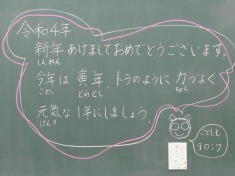 令和4年
新年あけましておめでとうございます。
しんねん
今年は寅年、トラのように力づよく
ことし とらどし ちから
元気な1年にしましょう。
げんき
ことしも
ヨロシク